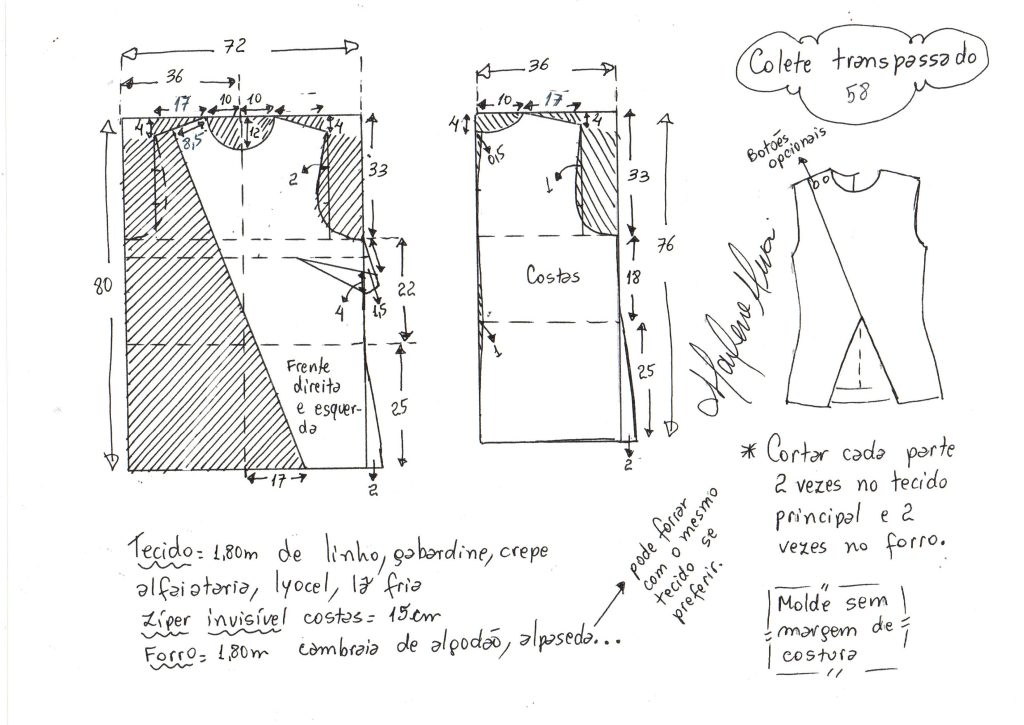 72
36
17
10
10
4
8,5
12
4
2
33
80
22
4
1,5
25
17
2
Frente
direita
e esquer-
da
36
10
17
4
4
0,5
1
33
76
Costas
18
1
25
2
Colete transpassado
58
Botões
opcionais
* Cortar cada parte
2 vezes no tecido
principal e 2
vezes no forro.
Molde sem
margem de
costura
Tecido = 1,80m de linho, gabardine, crepe
alfaiataria, lyocel, lã fria
Zíper invisível costas = 15cm
Forro = 1,80m cambraia de algodão, alpaseda...
pode forrar
com o mesmo
tecido se
preferir.